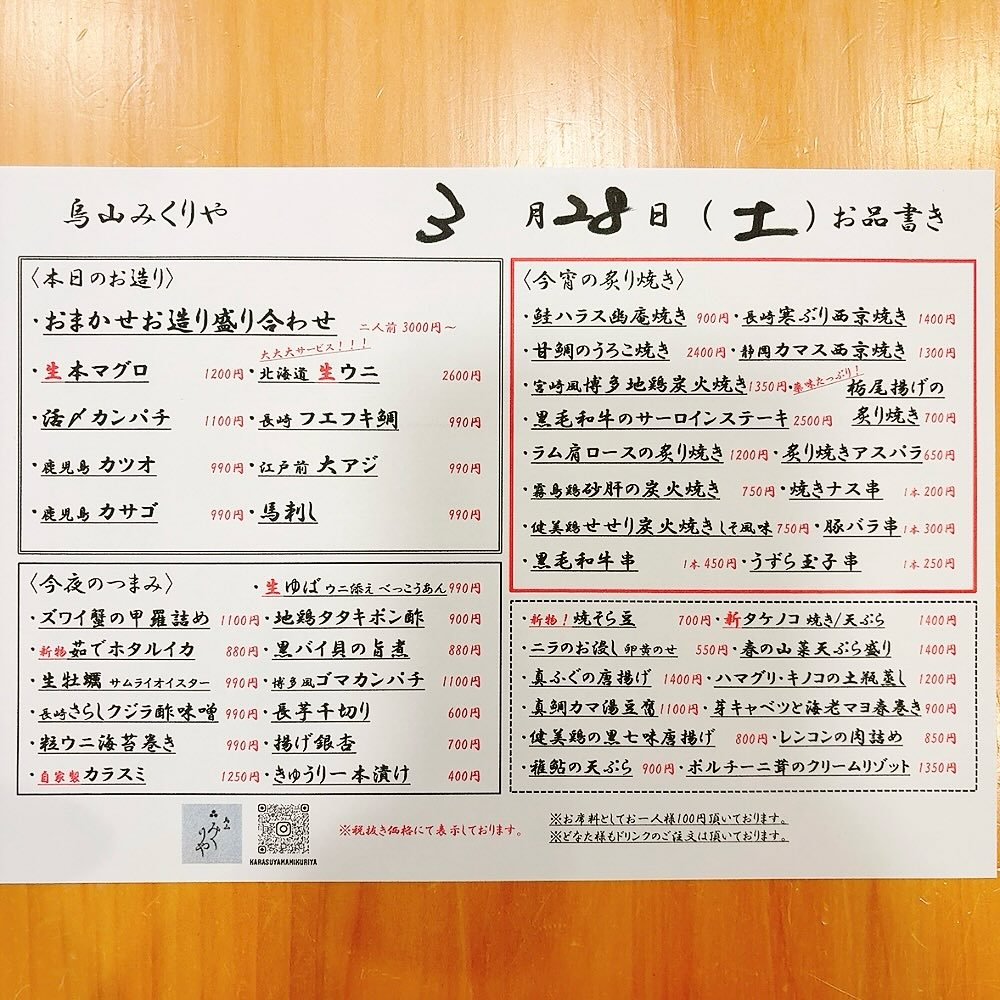 烏山みくりや 3月28日(土)お品書き
〈本日のお造り〉
・おまかせお造り盛り合わせ 二人前 3000円〜
大大大サービス!!!
・生本マグロ 1200円・北海道 生ウニ 2600円
・活〆カンパチ 1100円・長崎 フエフキ鯛 990円
・鹿児島 カツオ 990円・江戸前 大アジ 990円
・鹿児島 カサゴ 990円・馬刺し 990円
〈今夜のつまみ〉 ・生ゆば ウニ添え べっこうあん 990円
・ズワイ蟹の甲羅詰め 1100円・地鶏タタキポン酢 900円
・新物茹でホタルイカ 880円・黒バイ貝の旨煮 880円
・生牡蠣 サムライオイスター 990円・博多風ゴマカンパチ 1100円
・長崎さらしクジラ酢味噌 990円・長芋千切り 600円
・粒ウニ海苔巻き 990円・揚げ銀杏 700円
・自家製カラスミ 1250円・きゅうり一本漬け 400円
〈今宵の炙り焼き〉
・鮭ハラス幽庵焼き 900円・長崎寒ぶり西京焼き 1400円
・甘鯛のうろこ焼き 2400円・静岡カマス西京焼き 1300円
・宮崎風博多地鶏炭火焼き 1350円・薬味たっぷり!栃尾揚げの
・黒毛和牛のサーロインステーキ 2500円 炙り焼き 700円
・ラム肩ロースの炙り焼き 1200円・炙り焼きアスパラ 650円
・霧島鶏砂肝の炭火焼き 750円・焼きナス串 1本 200円
・健美鶏せせり炭火焼きしそ風味 750円・豚バラ串 1本 300円
・黒毛和牛串 1本 450円・うずら玉子串 1本 250円
・新物!焼そら豆 700円・新タケノコ 焼き/天ぷら 1400円
・ニラのお浸し 卵黄のせ 550円・春の山菜天ぷら盛り 1400円
・真ふぐの唐揚げ 1400円・ハマグリ・キノコの土瓶蒸し 1200円
・真鯛カマ湯豆腐 1100円・芽キャベツと海老マヨ春巻き 900円
・健美鶏の黒七味唐揚げ 800円・レンコンの肉詰め 850円
・稚鮎の天ぷら 900円・ポルチーニ茸のクリームリゾット 1350円
みくりや
KARASUYAMAMIKURIYA
※税抜き価格にて表示しております。
※お席料としてお一人様100円頂いております。
※どなた様もドリンクのご注文は頂いております。